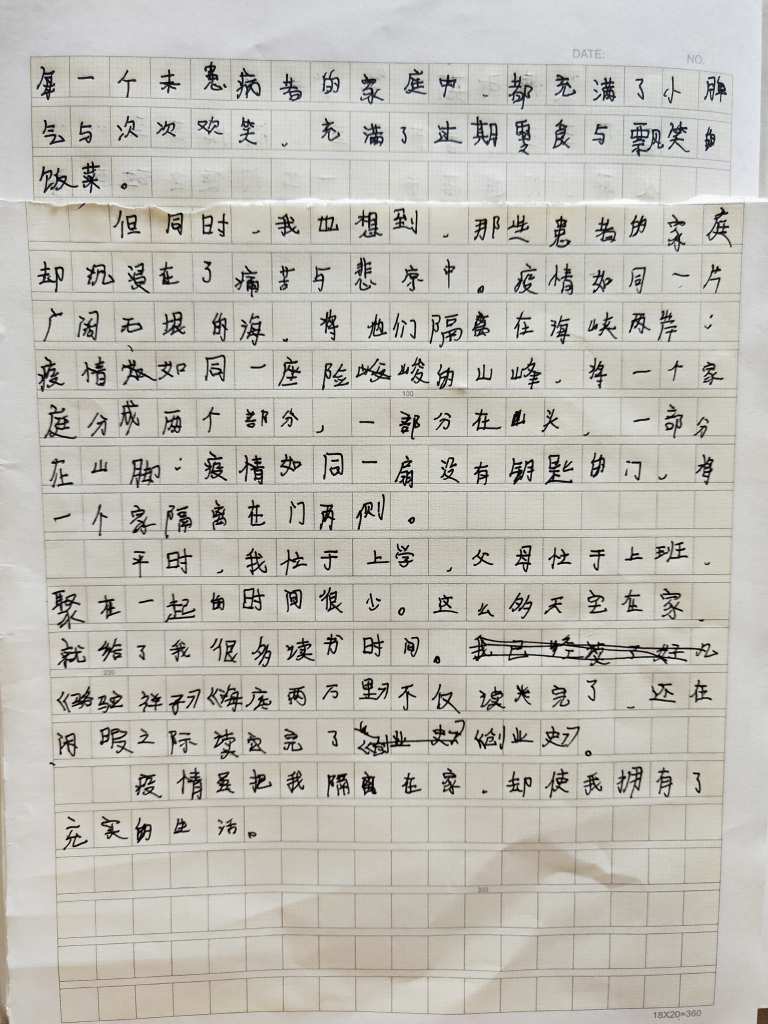 DATE: NO.
每一个未患病者的家庭中，都充满了小脾
气与次次欢笑，充满了过期零食与飘笑的
饭菜。
但同时，我也想到，那些患者的家庭
却沉浸在了痛苦与悲凉中。疫情如同一片
广阔无垠的海，将他们隔离在海峡两岸；
疫情如同一座险峻的山峰，将一个家
100
庭分成两个部分，一部分在山头，一部分
在山脚；疫情如同一扇没有钥匙的门，将
一个家隔离在门两侧。
平时，我忙于上学，父母忙于上班，
聚在一起的时间很少。这么多天宅在家，
就给了我很多读书时间。
200
《骆驼祥子》《海底两万里》不仅读完了，还在
闲暇之际读完了《创业史》。
疫情虽把我隔离在家，却使我拥有了
充实的生活。
300
18X20=360